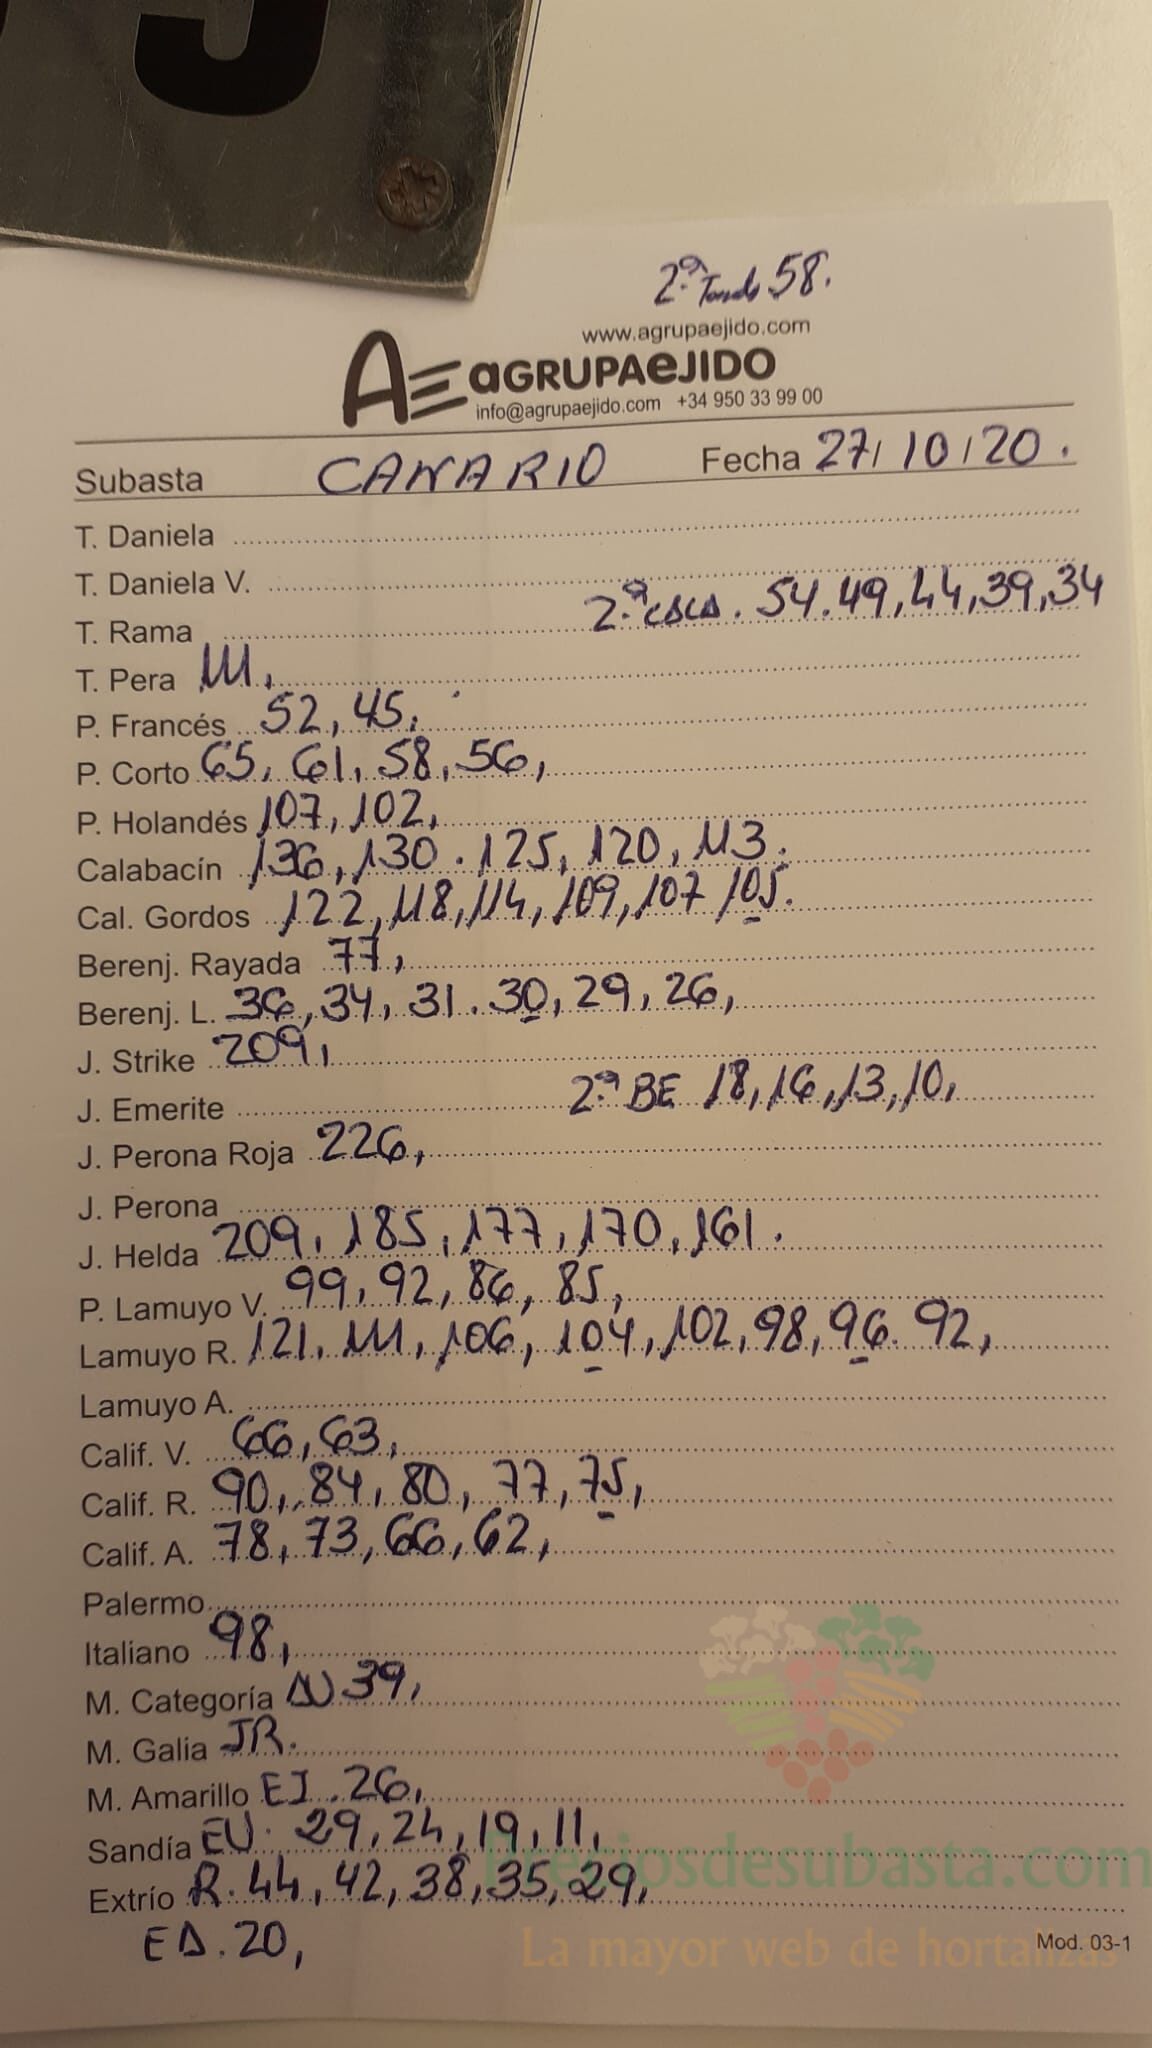 2ª Tanda 58.
www.agrupaejido.com
AE aGRUPAeJIDO
info@agrupaejido.com +34 950 33 99 00
Subasta CANARIO Fecha 27/10/20.
T. Daniela
T. Daniela V.
2ª CALA. 54. 49, 44, 39, 34
T. Rama
T. Pera 111,
P. Francés 52, 45,
P. Corto 65, 61, 58, 56,
P. Holandés 107, 102,
Calabacín 136, 130. 125, 120, 113.
Cal. Gordos 122, 118, 114, 109, 107 105.
Berenj. Rayada 77,
Berenj. L. 36, 34, 31. 30, 29, 26,
J. Strike 209,
J. Emerite 2ª BE 18, 16, 13, 10,
J. Perona Roja 226,
J. Perona
J. Helda 209, 185, 177, 170, 161.
P. Lamuyo V. 99, 92, 86, 85,
Lamuyo R. 121, 111, 106, 104, 102, 98, 96. 92,
Lamuyo A.
Calif. V. 66, 63,
Calif. R. 90, 84, 80, 77, 75,
Calif. A. 78, 73, 66, 62,
Palermo
Italiano 98,
M. Categoría 39,
M. Galia JR.
M. Amarillo EI. 26,
Sandía EU. 29, 24, 19, 11,
Preciosdesubasta.com
Extrío R. 44, 42, 38, 35, 29,
ED. 20,
La mayor web de hortalizas
Mod. 03-1